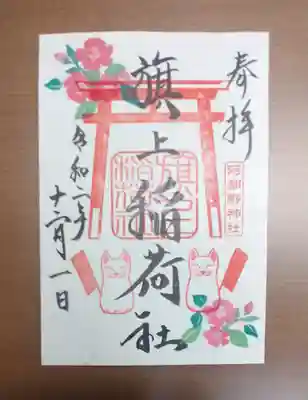 奉拝
旗上稲荷社
阿部野神社
旗上稲荷社
令和二年
十二月一日